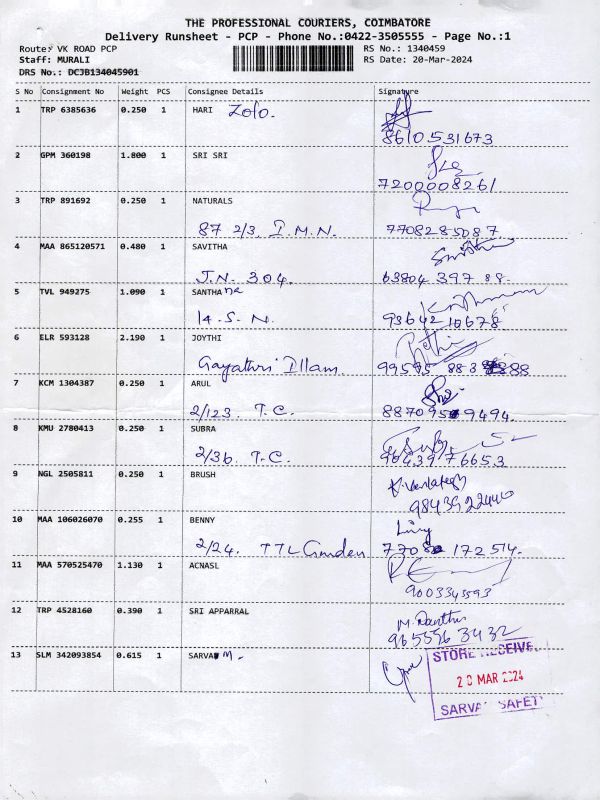 THE PROFESSIONAL COURIERS, COIMBATORE
Delivery Runsheet - PCP - Phone No.:0422-3505555 - Page No.:1
Route: VK ROAD PCP RS No.: 1340459
Staff: MURALI RS Date: 20-Mar-2024
DRS No.: DCJB134045901
S No Consignment No Weight PCS Consignee Details Signature
1 TRP 6385636 0.250 1 HARI Zolo.
8610531673
2 GPM 360198 1.800 1 SRI SRI
7200008261
3 TRP 891692 0.250 1 NATURALS
87 2/3, I.M.N. 7708285087
4 MAA 865120571 0.480 1 SAVITHA
J.N. 304. 63804 397 88.
5 TVL 949275 1.090 1 SANTHA na
14. S. N. 93642 10678
6 ELR 593128 2.190 1 JOYTHI
Gayathri Illam 99595 883 888
7 KCM 1304387 0.250 1 ARUL
2/123. T.C. 88709 9494.
8 KMU 2780413 0.250 1 SUBRA
2/36. T.C. 9043976653
9 NGL 2505811 0.250 1 BRUSH
K. Venkatesh
9843922440
10 MAA 106026070 0.255 1 BENNY
2/24. TTL Garden 7708 172 514.
11 MAA 570525470 1.130 1 ACNASL
9003343593
12 TRP 4528160 0.390 1 SRI APPARRAL
M.
965556 3432
13 SLM 342093854 0.615 1 SARVA M.
STORE RECEIVE
20 MAR 2024
SARVA SAFET